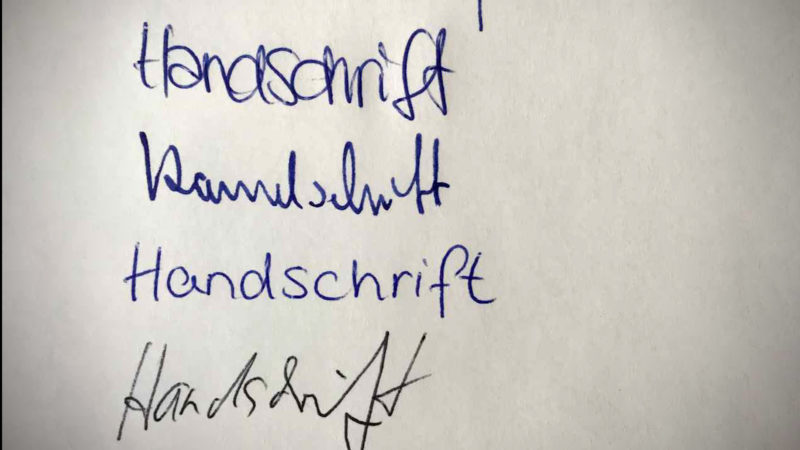 Handschrift
Handschrift
Handschrift
Handschrift